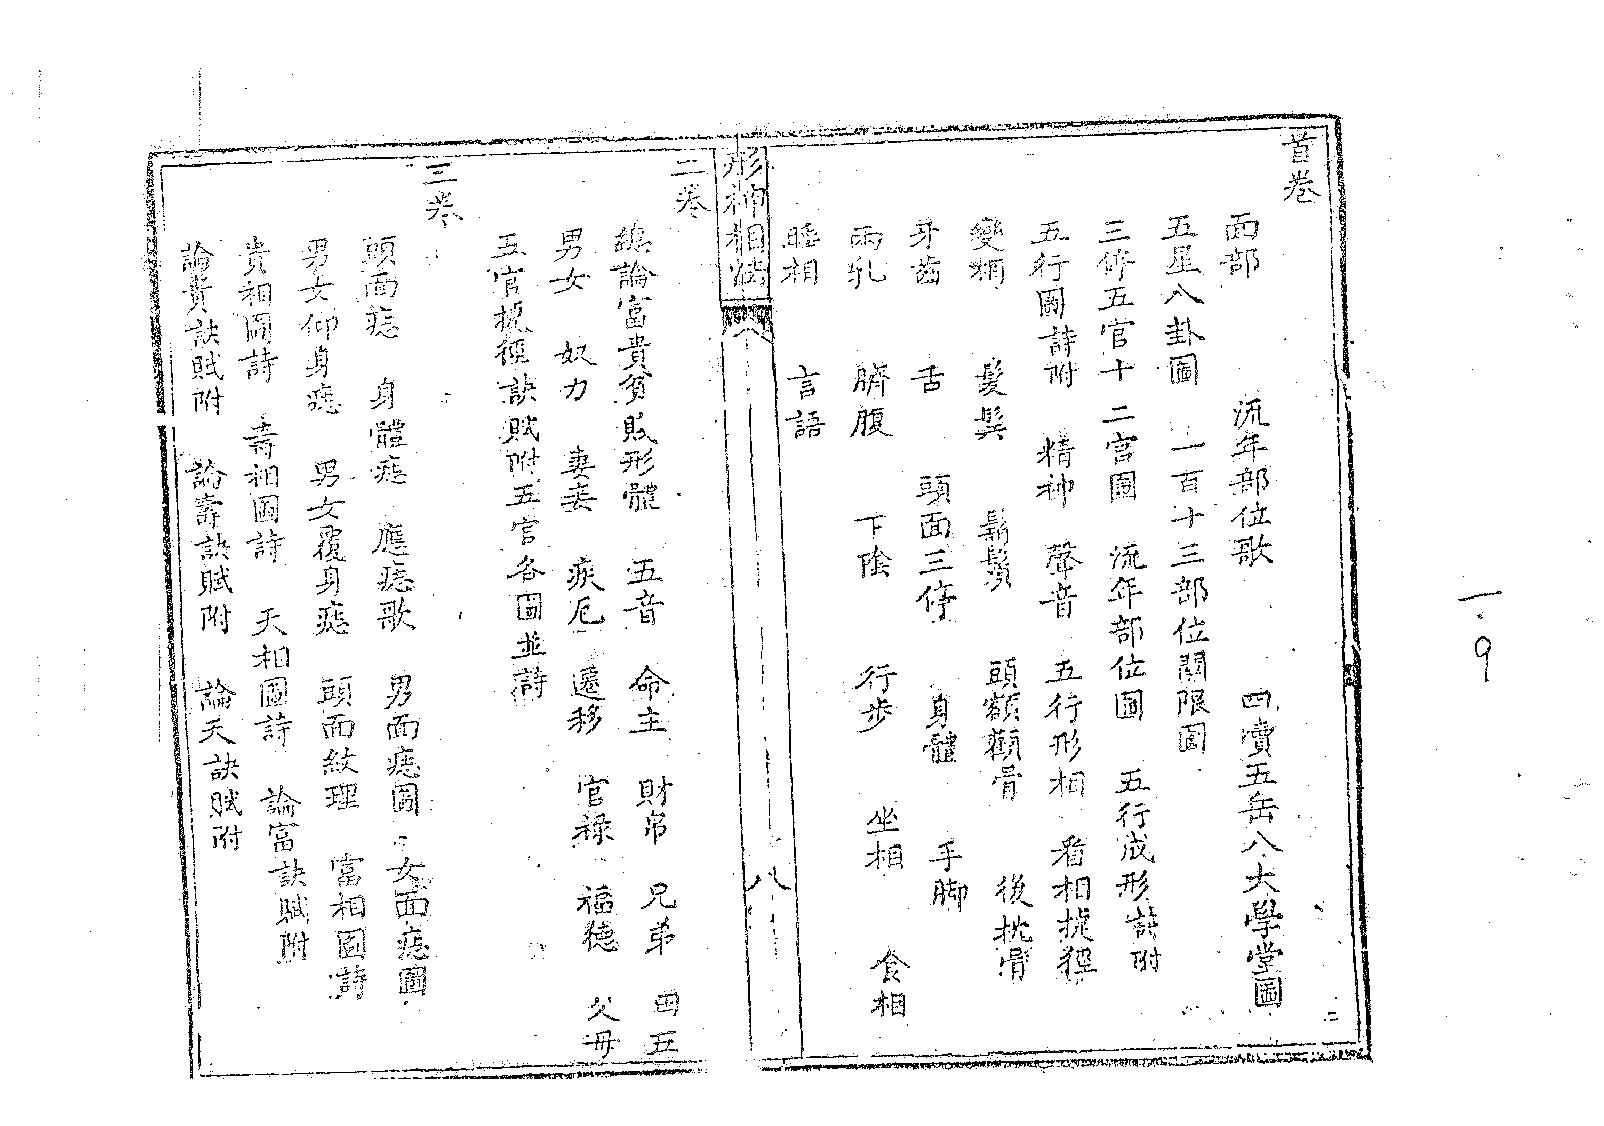 首卷
面部 流年部位歌 四瀆五岳八大學堂圖
五星八卦圖 一百十三部位關限圖
三停五官十二宮圖 流年部位圖 五行成形詩附
五行圖詩附 精神 聲音 五行形相 看相捷徑
變相 髮鬂 鬍鬚 頭額顴骨 後枕骨
牙齒 舌 頭面三停 身體 手腳
両乳 臍腹 下陰 行步 坐相 食相
睡相 言語
形神相法
八
二卷
總論富貴貧賎形體 五音 命主 財帛 兄弟 田五
男女 奴力 妻妾 疾厄 遷移 官祿 福德 父母
五官捷徑訣賦附五官各圖並詩
三卷
頭面痣 身體痣 應痣歌 男面痣圖 女面痣圖
男女仰身痣 男女覆身痣 頭面紋理 富相圖詩
貴相圖詩 壽相圖詩 夭相圖詩 論富訣賦附
論貴訣賦附 論壽訣賦附 論夭訣賦附
一.9